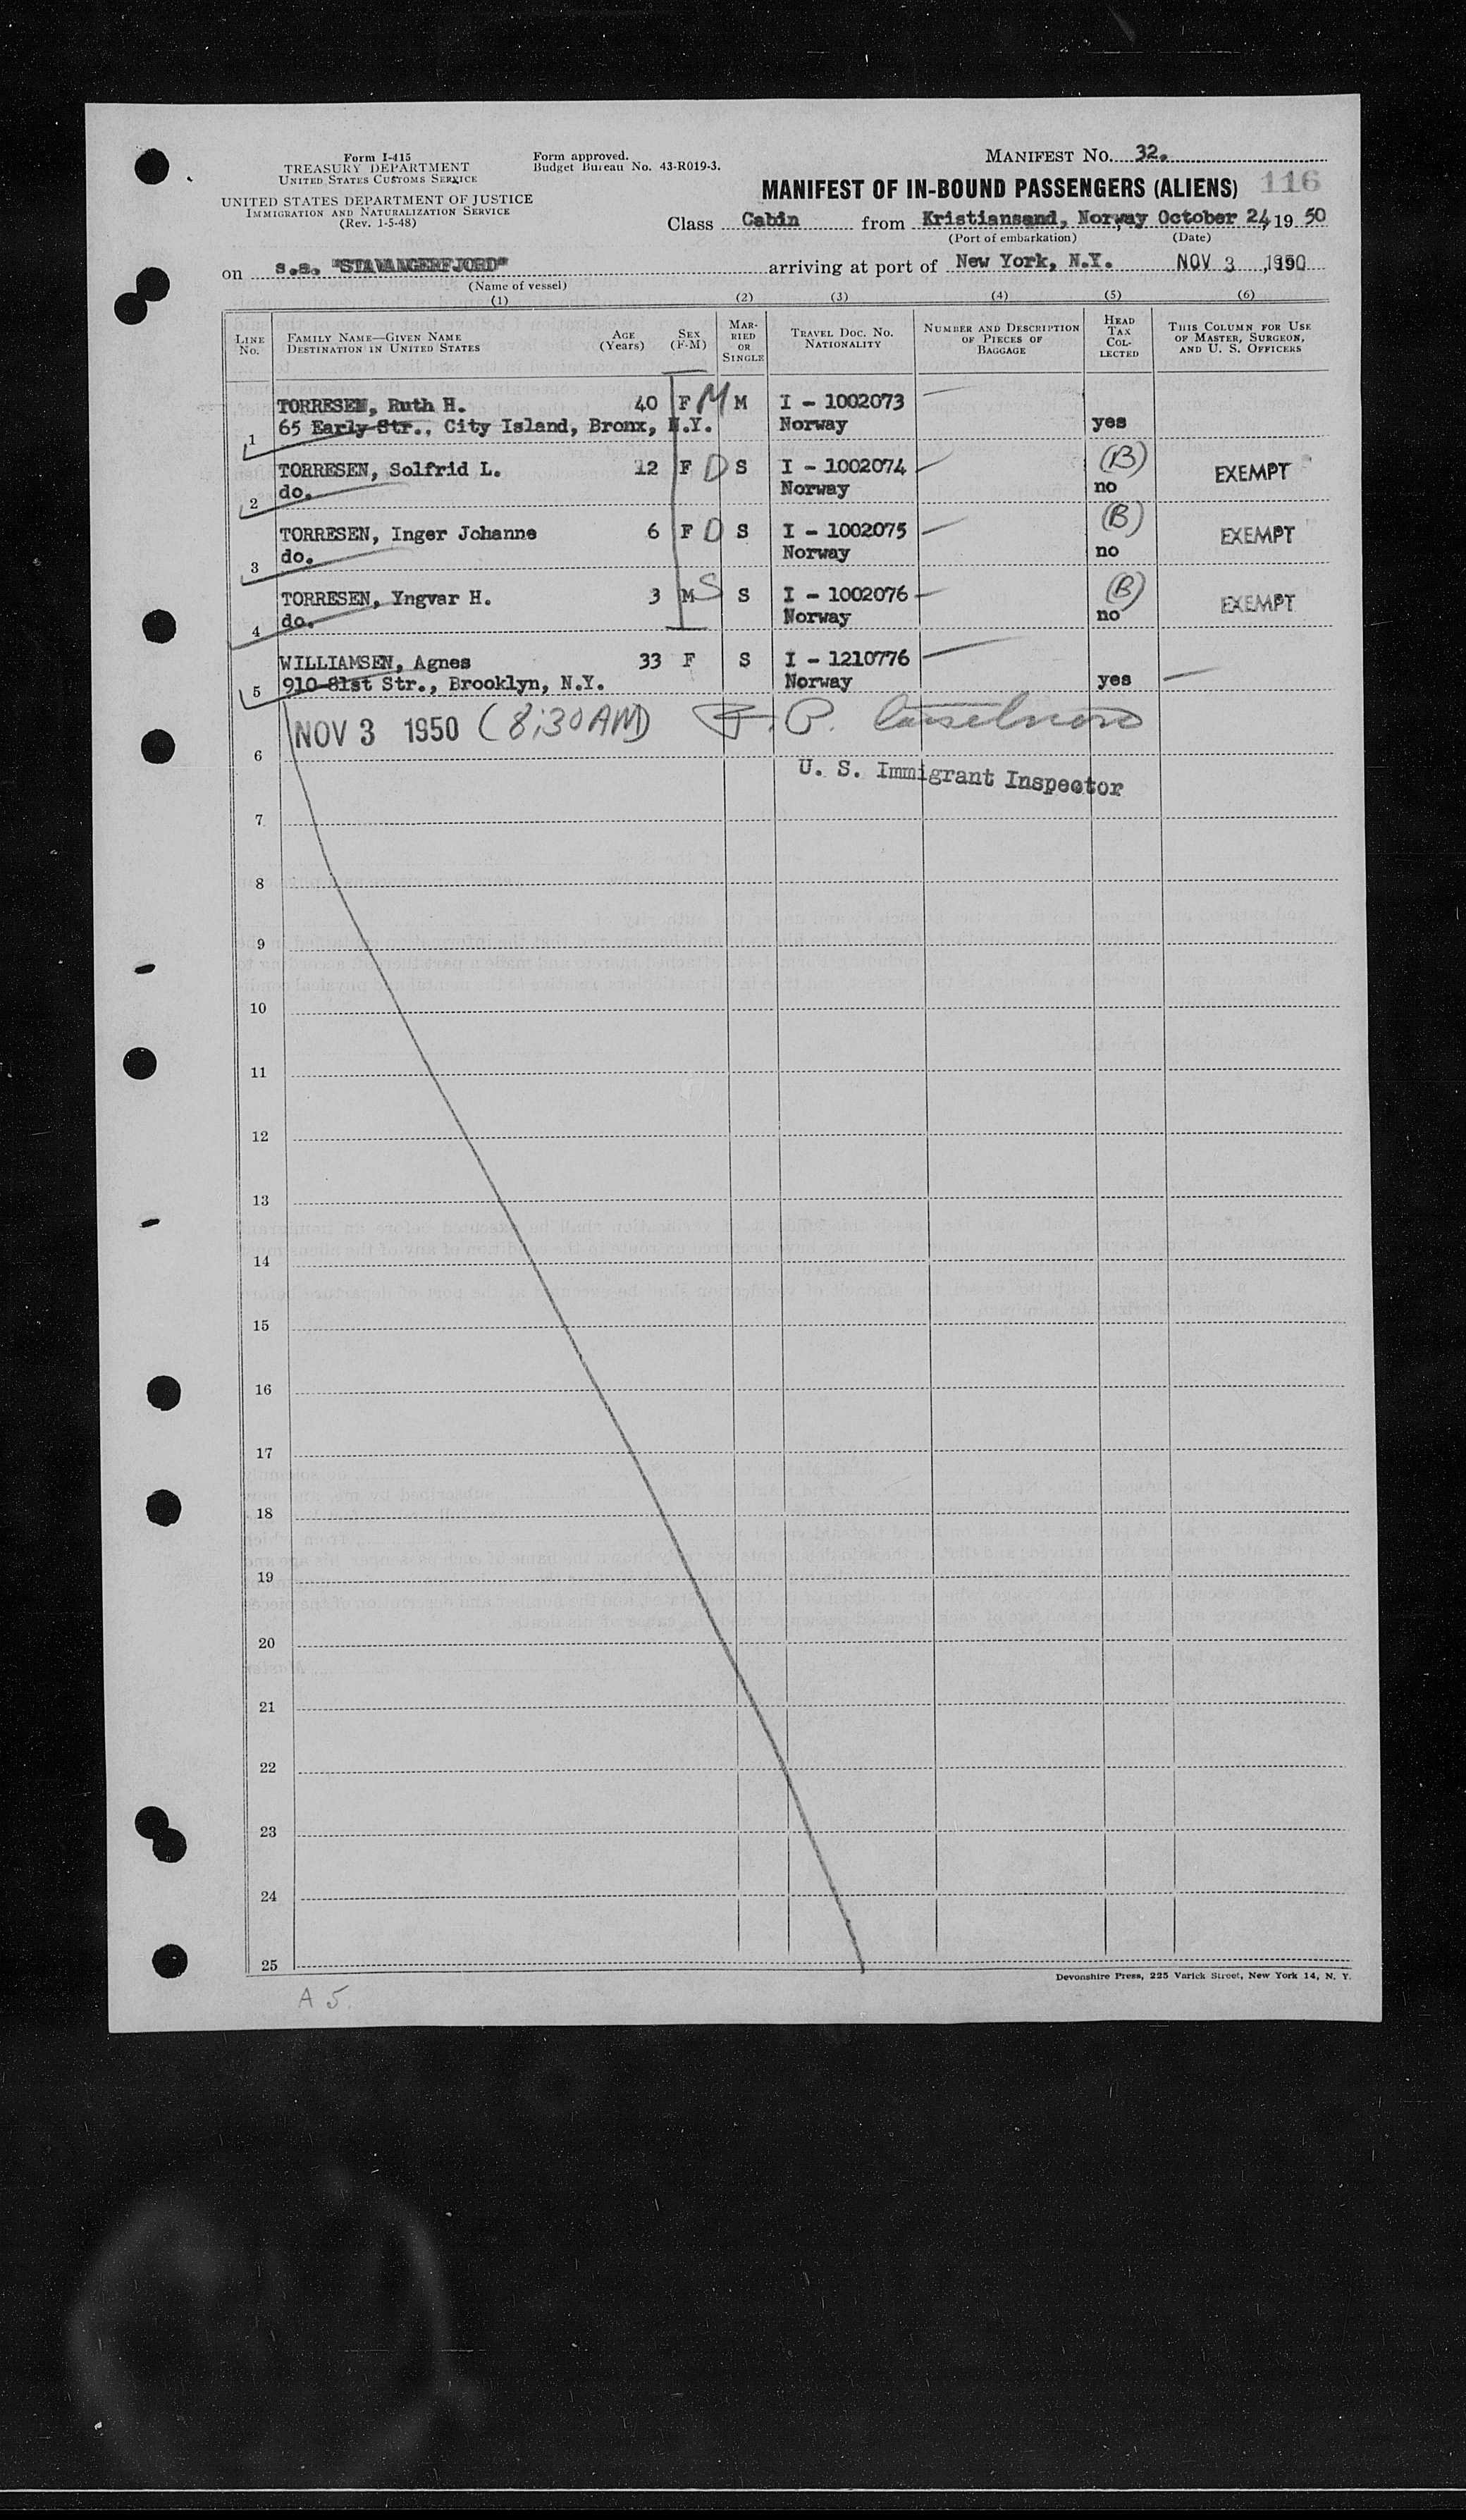 Form I-415
TREASURY DEPARTMENT
UNITED STATES CUSTOMS SERVICE
UNITED STATES DEPARTMENT OF JUSTICE
IMMIGRATION AND NATURALIZATION SERVICE
(Rev. 1-5-48)
Form approved.
Budget Bureau No. 43-R019-3.
MANIFEST No. 32.
MANIFEST OF IN-BOUND PASSENGERS (ALIENS) 116
Class Cabin from Kristiansand, Norway October 24, 19 50
(Port of embarkation) (Date)
on s.s. "STAVANGERFJORD" arriving at port of New York, N.Y. NOV 3, 1950
(Name of vessel)
(1) (2) (3) (4) (5) (6)
LINE No. FAMILY NAME—GIVEN NAME DESTINATION IN UNITED STATES AGE (Years) SEX (F-M) MARRIED OR SINGLE TRAVEL DOC. No. NATIONALITY NUMBER AND DESCRIPTION OF PIECES OF BAGGAGE HEAD TAX COLLECTED THIS COLUMN FOR USE OF MASTER, SURGEON, AND U. S. OFFICERS
TORRESEN, Ruth H. 40 F M M I - 1002073
1 65 Early Str., City Island, Bronx, N.Y. Norway yes
TORRESEN, Solfrid L. 12 F D S I - 1002074 (B) EXEMPT
2 do. Norway no
TORRESEN, Inger Johanne 6 F D S I - 1002075 (B) EXEMPT
3 do. Norway no
TORRESEN, Yngvar H. 3 M S S I - 1002076 (B) EXEMPT
4 do. Norway no
WILLIAMSEN, Agnes 33 F S I - 1210776
5 910-81st Str., Brooklyn, N.Y. Norway yes
NOV 3 1950 (8:30AM)
6
U. S. Immigrant Inspector
7
8
9
10
11
12
13
14
15
16
17
18
19
20
21
22
23
24
25
Devonshire Press, 225 Varick Street, New York 14, N. Y.
A 5.